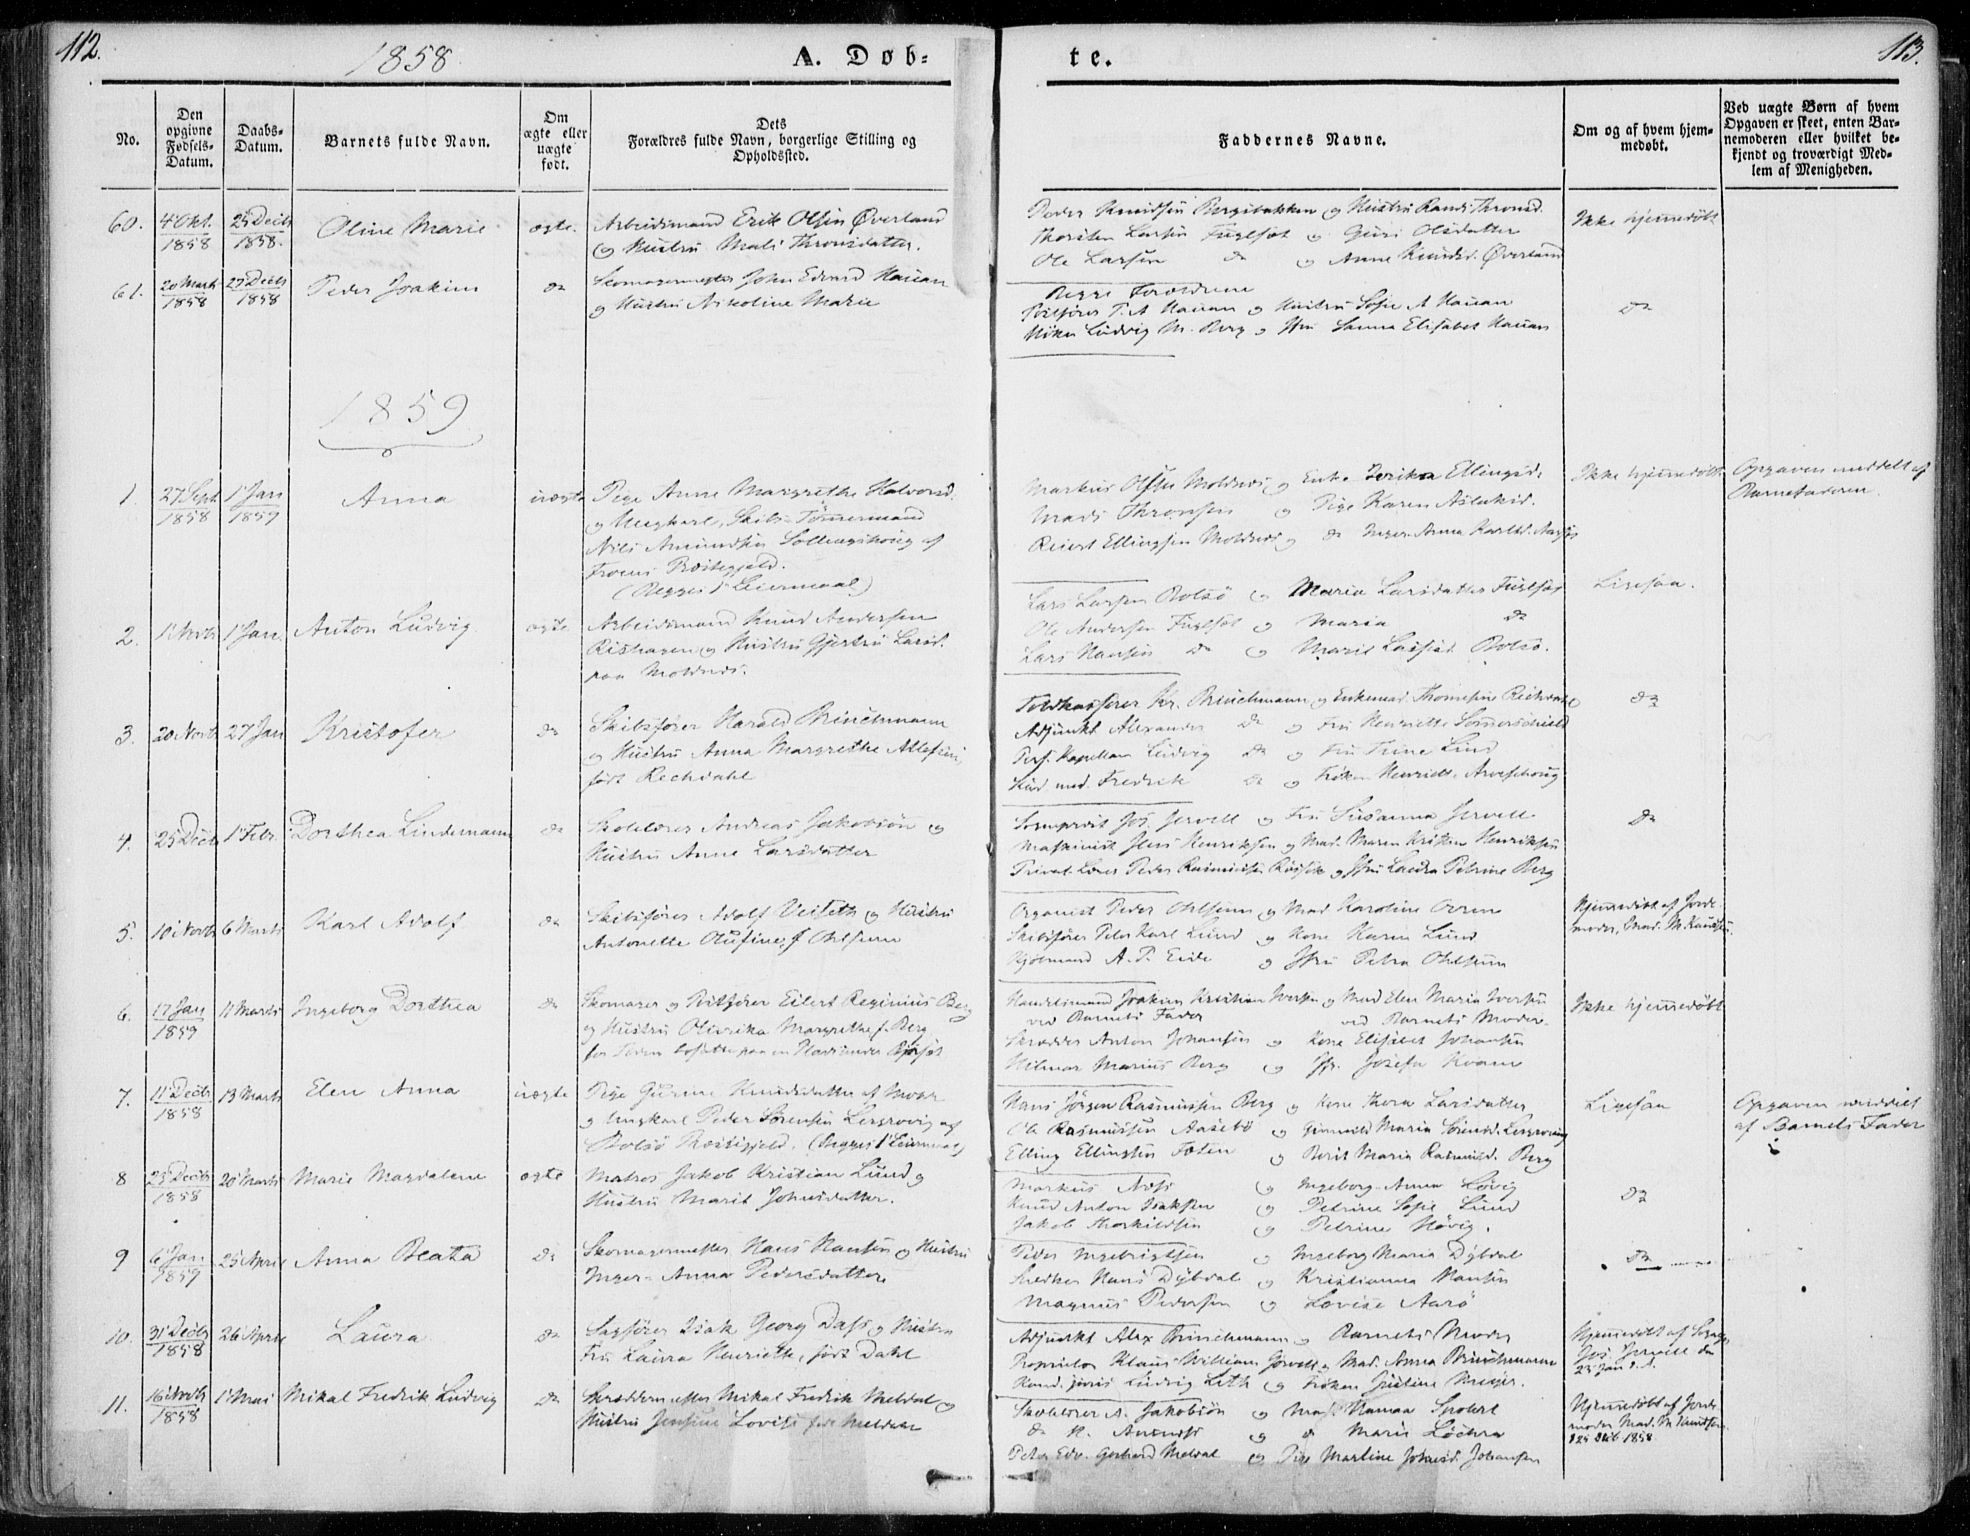 112.
1858
A. Døb-
te.
113.
No.
Den opgivne Fødsels-Datum.
Daabs-Datum.
Barnets fulde Navn.
Om ægte eller uægte født.
Dets
Forældres fulde Navn, borgerlige Stilling og
Opholdssted.
Faddernes Navne.
Om og af hvem hjem-
medøbt.
Ved uægte Børn af hvem
Opgaven er skeet, enten Bar-
nemoderen eller hvilket be-
kjendt og troværdigt Med-
lem af Menigheden.
60. 4 Okt. 1858 25 Decbr 1858. Oline Marie ægte. Arbeidsmand Erik Olsen Øverland
og Hustru Mali Thronsdatter.
Peder Knudsen Bergsbakken og Hustru Randi Thronsd.
Thorsten Larsen Fuglset og Guri Olsdatter
Ole Larsen do og Anne Knudsd. Øverland
Ikke hjemmedøbt
61. 20 Marts 1858 27 Decbr 1858 Peder Joakim do Skomagermester John Edvard Hauan
og Hustru Nikoline Marie
Begge Forældrene
P. A Hauan og Hustru Sofie A Hauan
Ludvig M. Berg og Jfru Sanna Elisabet Hauan
do
1859
1. 27 Sept. 1858 1 Jan 1859 Anna uægte Pige Anne Margrethe Halvorsd.
og Ungkarl, Skibs-Tømmermand
Nils Amundsen af
Præstegjeld.
(Begges 1 Leiermaal)
Markus Olsen Moldnes og Enke Ellingsd.
Mads Thronsen og Pige Karen Aslaksd.
Reiert Ellingsen Moldnes og do Inger Anna
Ikke hjemmedøbt
Opgaven meddelt af
Barnefaderen.
2. 1 Novbr 1 Jan. Anton Ludvig ægte Arbeidsmand Knud Andersen
Rishagen og Hustru Gjertru Larsd.
paa Moldnes.
Lars Larsen Bolsø og Maria Larsdatter Fuglset
Ole Andersen Fuglset og Maria do
Lars Hansen do og Marit Bolsø.
Ligesaa.
3. 20 Novbr 27 Jan Kristofer do Skibsfører Harald Brinchmann
og Hustru Anna Margrethe
født Rechdahl
Toldkasserer Kr. Brinchmann og
Adjunkt Alexander do og Fru Henriette Sommerschield
Pers. Kapellan Ludvig do og Fru Trine Lind
Stud. med. Fredrik do og Frøken Henriette Aveschoug
do
4. 25 Decbr 1 Febr. Dorthea Lindemann do Skolelærer Andreas Jakobsøn og
Hustru Anne Larsdatter
Sogneprest Jos. Jervell og Fru Susanna Jervell
Maskinist Jens Henriksen og Mad. Maren Kristen Henriksen
Privat Lærer Peder Rasmussen og Jfru Laura Petrine Berg
do
5. 10 Novbr 6 Marts Karl Adolf do Skibsfører Adolf Veiseth og Hustru
Antonette Olufine, f. Ohlsenn
Organist Peder Ohlsenn og Mad Karoline
Skibsfører Peter Karl Lund og Kone Karen Lund
A. P. Eide og Jfru Petra Ohlsenn
Hjemmedøbt af Jorde-
moder, Mad. M. Knudsen
6. 17 Jan 1859 11 Marts Ingeborg Dorthea do Skomager og Eilert Reginius Berg
og Hustru Olivrika Margrethe f. Berg
Handelsmand Joakim Kristian Iversen og Mad Elen Maria Iversen
ved Barnets Fader ved Barnets Moder.
Skrædder Anton Johansen og Kone Elisabet Johansen
Hilmar Marius Berg og Jfr. Josefa Kvam
Ikke hjemmedøbt
7. 11 Decbr 1858 13 Marts Elen Anna uægte Pige Knudsdatter af
og Ungkarl Peder Sørensen Lergrovig af
Bolsø Præstegjeld. (Begges 1 Leiermaal)
Hans Jörgen Rasmussen Berg og Kone Thora Larsdatter
Ole Rasmussen Aasebø og Gunnild Maria Sørensd. Lergrovig
Elling Ellingsen Foten og Berit Maria Rasmusd. Berg
Ligesaa
Opgaven meddelt
af Barnets Fader
8 23 Decbr 1858 20 Marts Marie Magdalene ægte Matros Jakob Kristian Lund og
Hustru Marit Johnsdatter.
Markus og Ingeborg Anna Løvig
Knud Anton Isaksen og Petrine Sofie Lund
Jakob Thorkildsen og Petrine Høvig.
do
9 6 Jan 1859 25 April Anna Beata do Skomagermester Hans Hansen og Hustru
Inger-Anna Pedersdatter
Peder Ingebrigtsen og Ingeborg Maria Dybdal
Snedker Hans Dybdal og Kristianna Hansen
Magnus Pedersen og Lovise Aarø
do
10. 31 Decbr 1858 26 April Laura do Sagfører Isak Georg Dass og Hustru
Fru Laura Henriette, født Dahl
Adjunkt Alex Brinchmann og Barnets Moder
Proprietær Klaus William Jervell og Mad. Anna Brinchmann
Kand. juris Ludvig Leth og Frøken Justine
Hjemmedøbt af Sognepr.
Jos. Jervell den
23 Jan d. A.
11. 16 Novbr 1858 1 Mai Mikal Fredrik Ludvig do Skræddermester Mikal Fredrik Meldal og
Hustru Jensine Lovise født Meldal
Skolelærer A. Jakobsøn og Hanna
do N. og do Marie
Peter Edv. Gerhard Meldal og Pige Martine Johansen
Hjemmedøbt af Jorde-
moder Mad. M Knudsen
1858